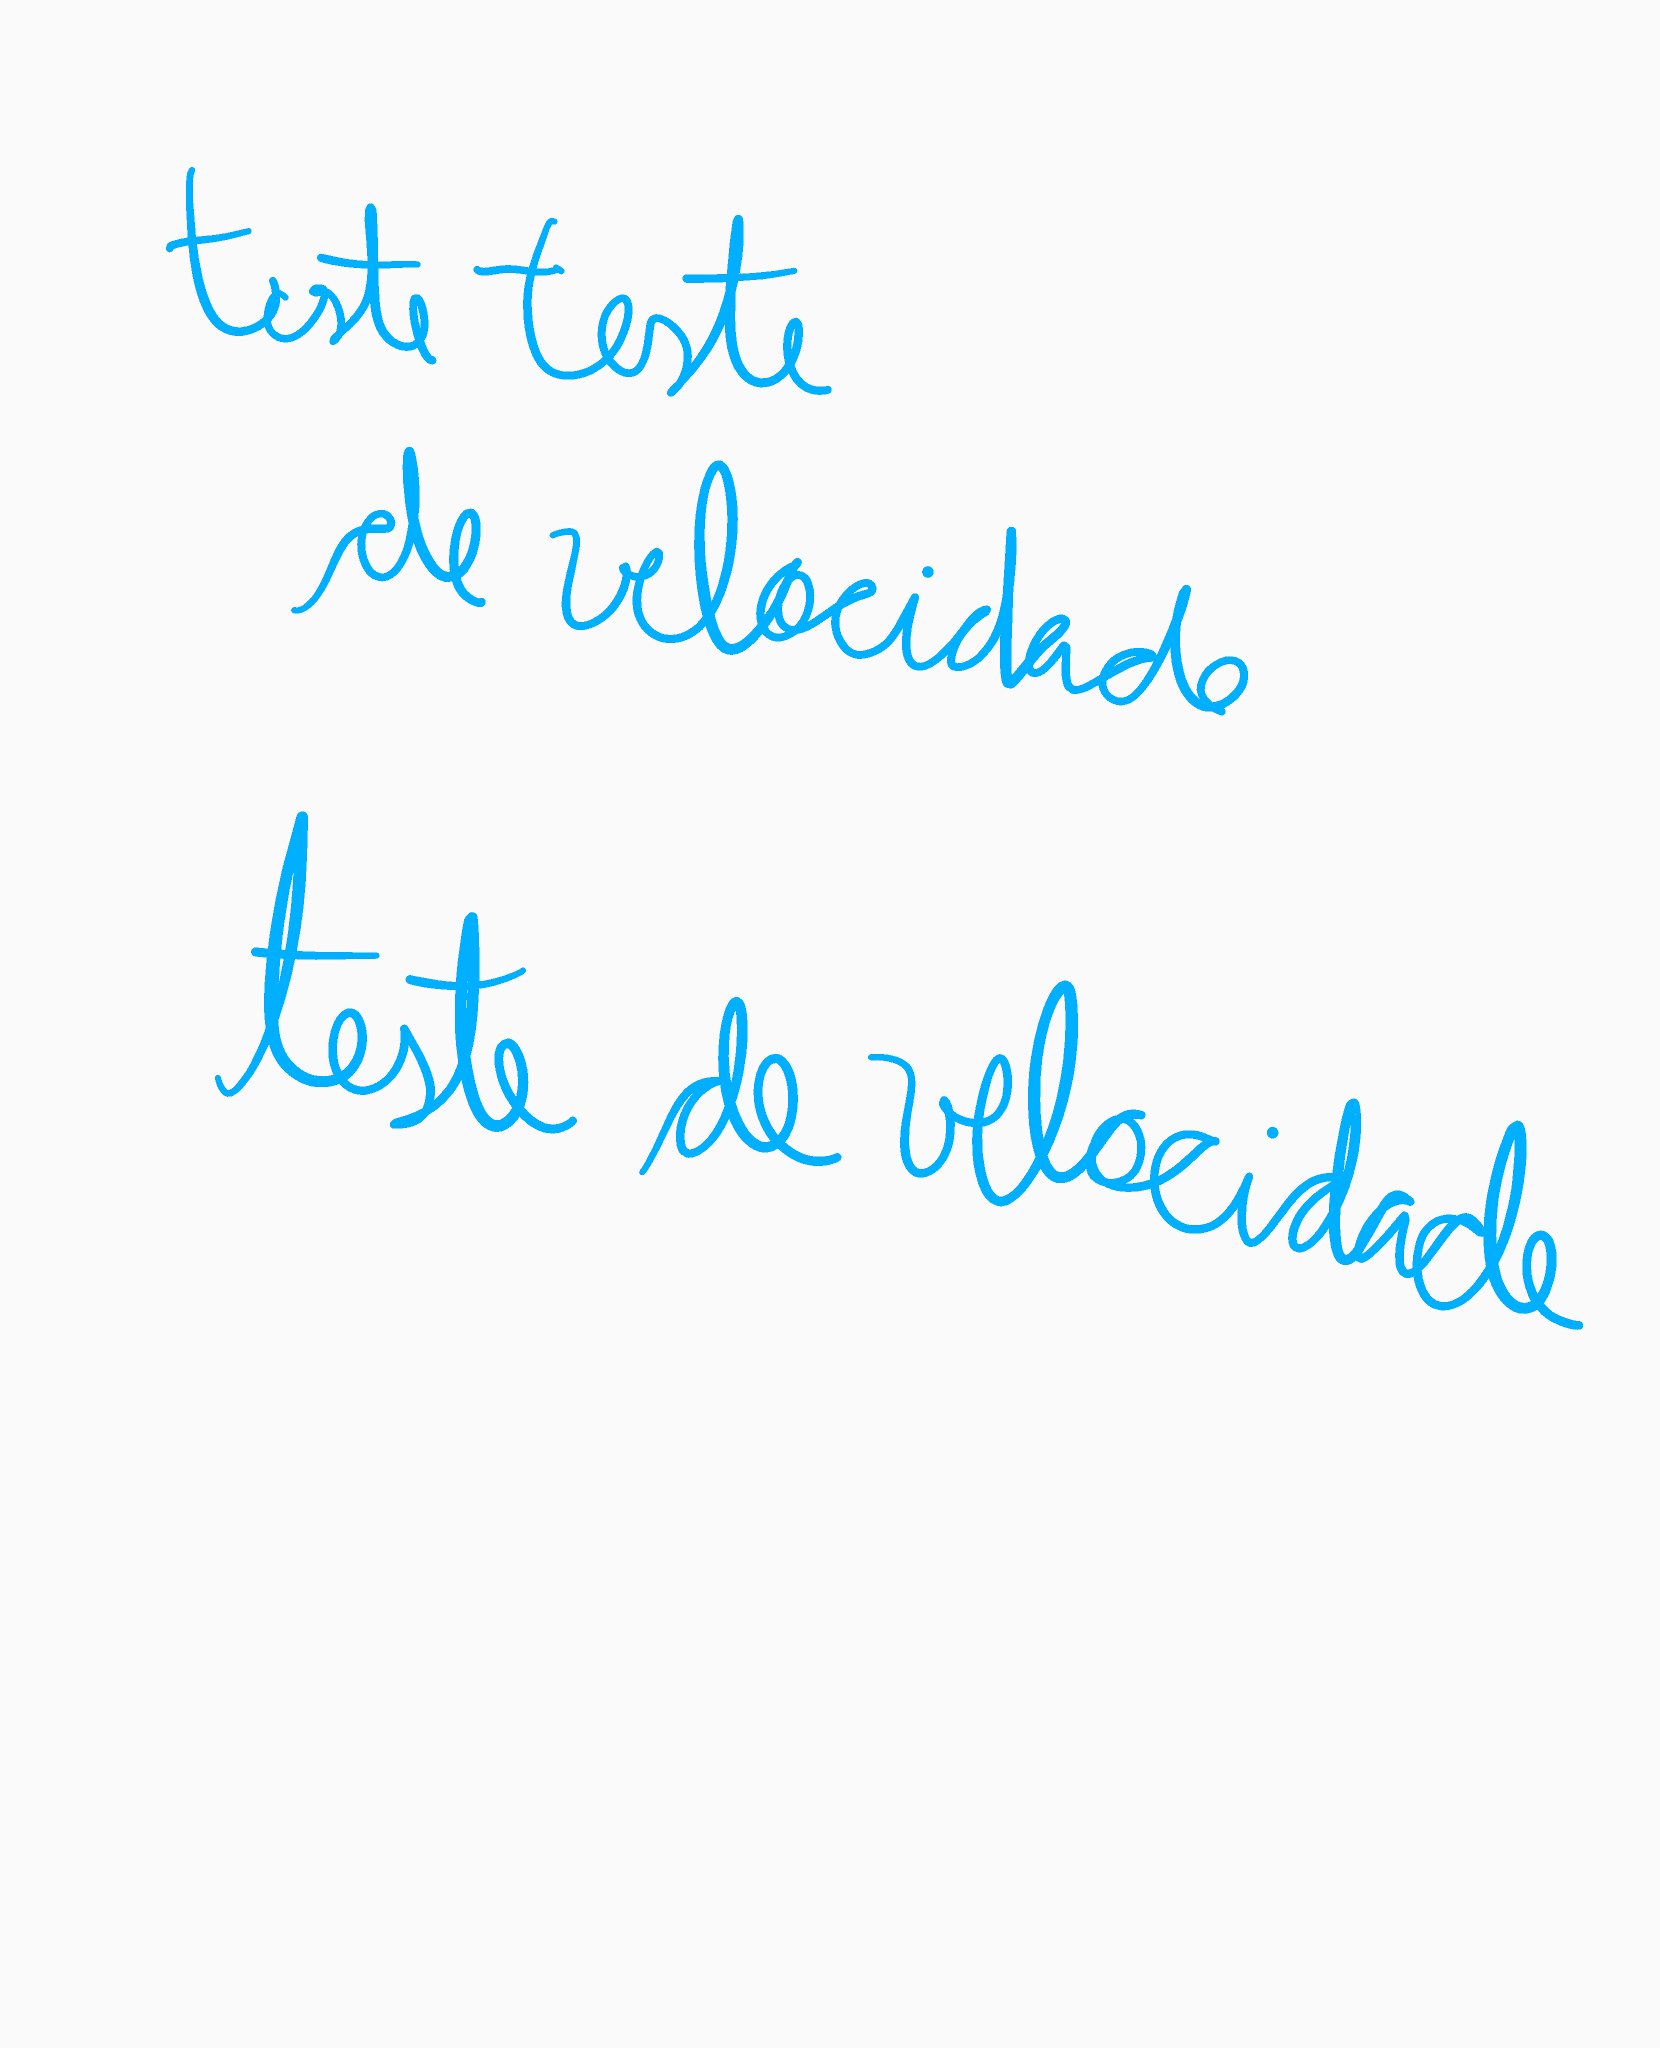 teste teste
de velocidade
teste de velocidade